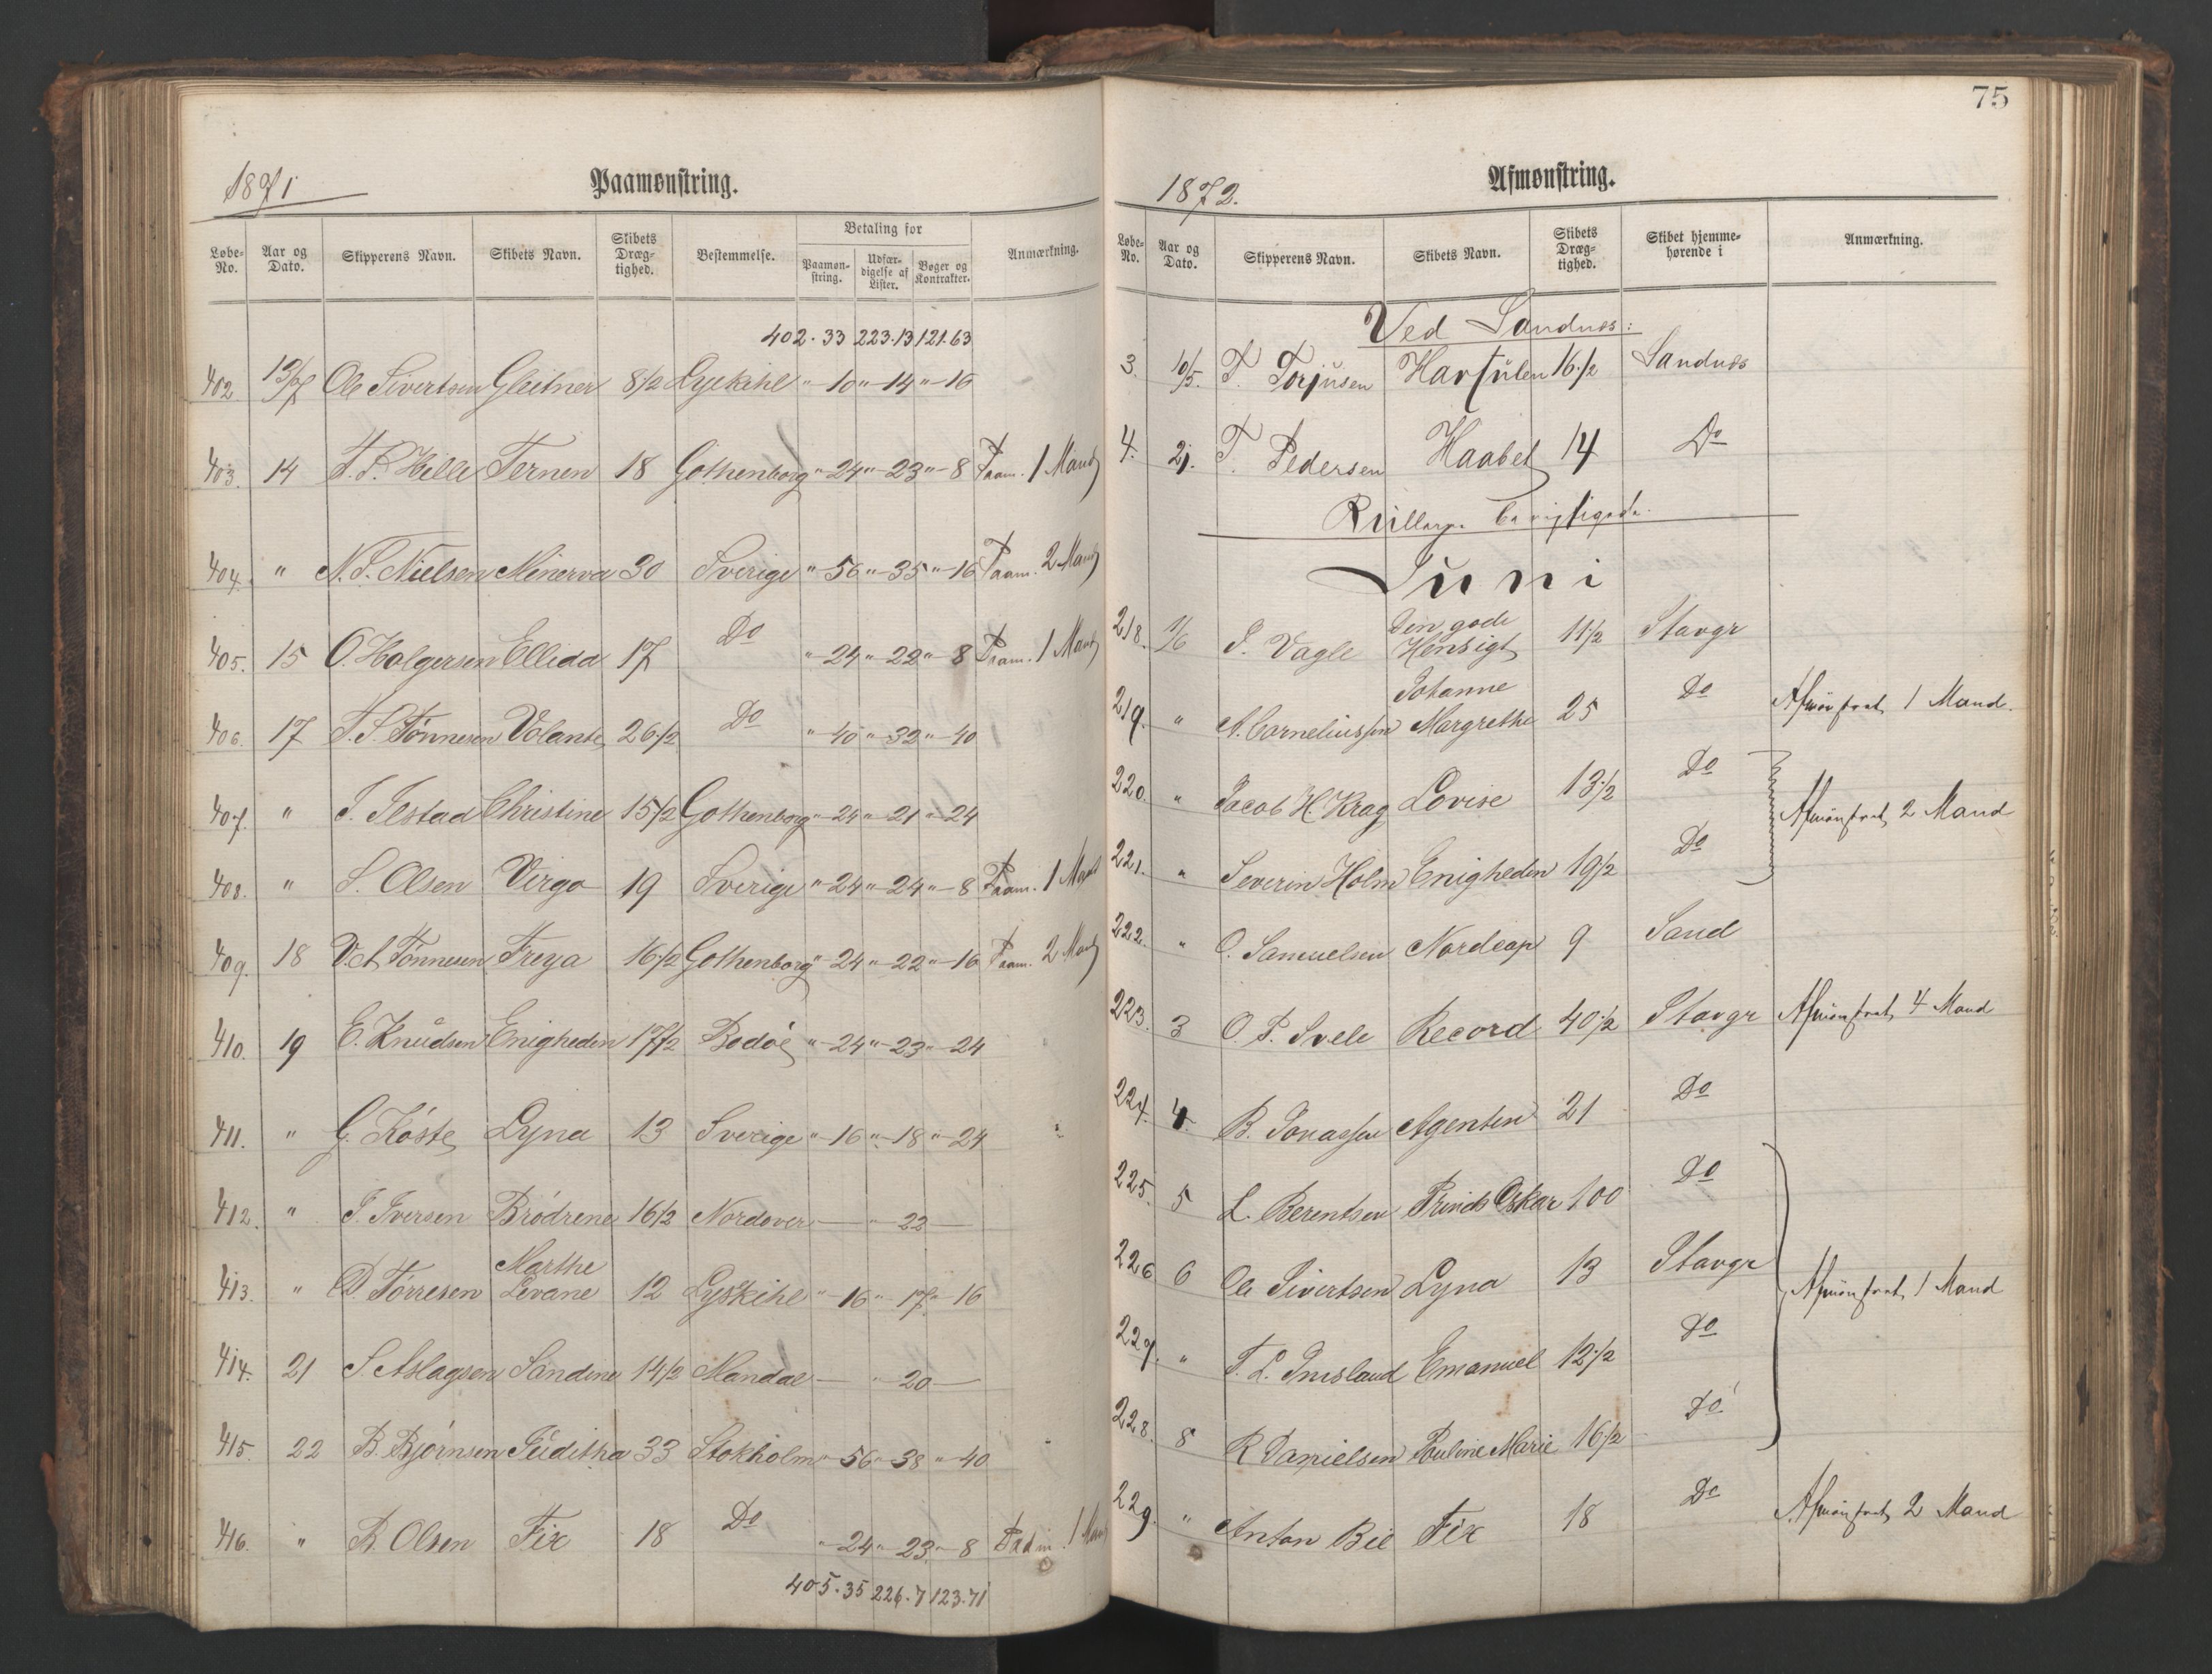 1871
Paamønstring.
Løbe-No. Aar og Dato. Skipperens Navn. Skibets Navn. Skibets Dræg-tighed. Bestemmelse. Betaling for Paamøn-string. Udfær-digelse af Lister. Bøger og Kontrakter. Anmærkning.
402.33 223.13 121.63
402. 13/7 Ole Sivertsen Gleitner 8 1/2 Lysekihl " - 10 " - 14 " - 16
403. 14 Hille Ternen 18 Gothenborg " - 24 " - 23 " - 8 Paam. 1 Mand
404. " N. S. Nielsen Minerva 30 Sverige " - 56 " - 35 " - 16 Paam. 2 Mand
405. 15 O. Holgersen Ellida 17 Do " - 24 " - 22 " - 8 Paam. 1 Mand
406. 17 T. S. Tönnesen Volante 26 1/2 Do " - 40 " - 32 " - 40
407. " J. Jlstad Christine 15 1/2 Gothenborg " - 24 " - 21 " - 24
408. " S. Olsen Virgo 19 Sverige " - 24 " - 24 " - 8 Paam. 1 Mand
409. 18 Tönnesen Freya 16 1/2 Gothenborg " - 24 " - 22 " - 16 Paam. 2 Mand
410. 19 E. Knudsen Enigheden 17 1/2 Bodöe " - 24 " - 23 " - 24
411. " G. Köste Lyna 13 Sverige " - 16 " - 18 " - 24
412. " J. Iversen Brödrene 16 1/2 Nordover — " - 22 —
413. " D. Törresen Marthe Levane 12 Lyskihl " - 16 " - 17 " - 16
414. 21 S. Aslagsen Sandine 14 1/2 Mandal — " 20 —
415. 22 B. Bjørnsen Juditha 33 Stokholm " - 56 " - 38 " - 40
416. " B. Olsen Fix 18 Do " - 24 " - 23 " - 8 1 Mand
405.35 226.7 123.71
75
1872.
Afmønstring.
Løbe-No. Aar og Dato. Skipperens Navn. Skibets Navn. Skibets Dræg-tighed. Skibet hjemme-hørende i Anmærkning.
Ved Sandnes:
3. 10/5. T. Torjusen 16 1/2 Sandnes
4. 21. T. Pedersen Haabet 14 Do
Juni
218. 1/6 J. Vagle Den gode Hensigt 11 1/2 Stavgr
219. " A. Corneliussen Johanne Margrethe 25 Do Afmönstret 1 Mand.
220. " Jacob H. Krag Lovise 13 1/2 Do
Afmönstret 2 Mand
221. " Severin Holm Enigheden 19 1/2 Do
222. " O. Samuelsen Nordcap 9 Sand
223. 3 O. P. Svele Record 40 1/2 Stavgr Afmönstret 4 Mand
224. 4. B. Jonassen Agenten 21 Do
225. 5 L. Berentsen Prinds Oskar 100 Do
226 6 Ole Sivertsen Lyna 13 Stavgr
Afmönstret 1 Mand
227. " T. L. Emanuel 12 1/2 Do
228. 8 R Danielsen Pauline Marie 16 1/2 Do
229. " Anton Bie Fix 18 Do Afmönstret 2 Mand